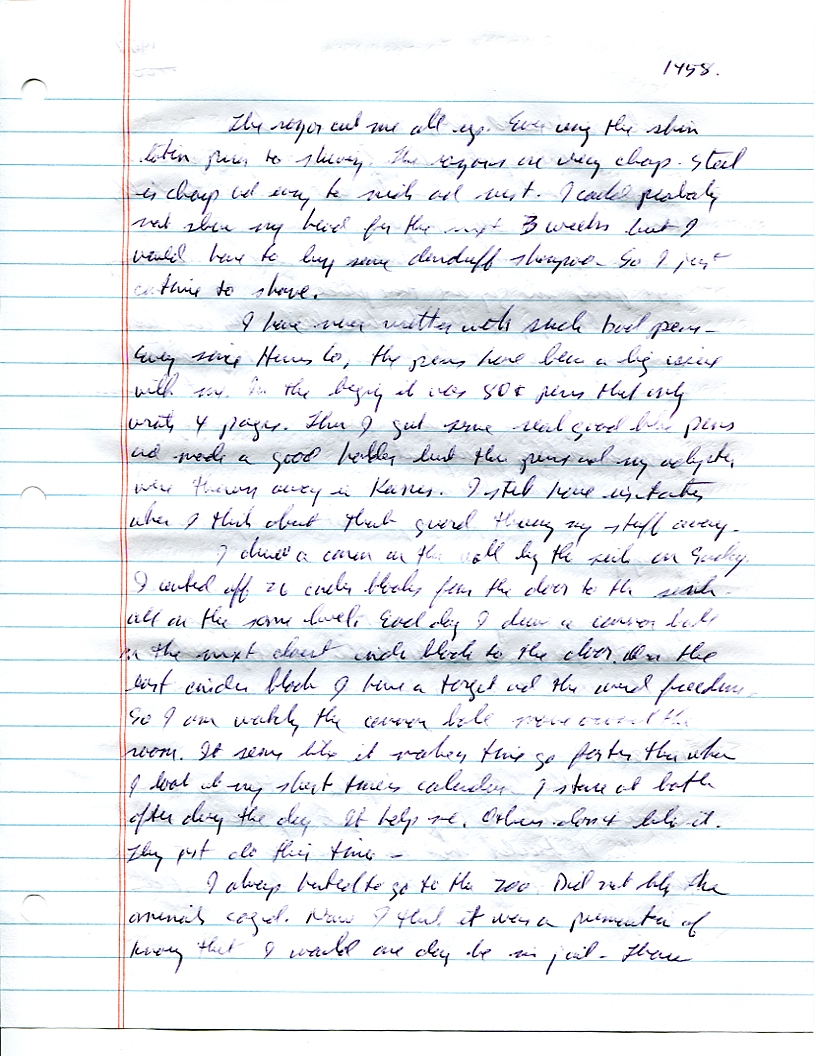 1458.
The razor cut me all up. Even using the skin
lotion prior to shaving. The razors are very cheap. Steel
is cheap and easy to nick and rust. I could probably
not shave my head for the next 3 weeks but I
would have to buy some dandruff shampoo. So I just
continue to shave.
I have never written with such bad pens -
Every since the pens have been a big issue
with me. In the beginning it was 80¢ pens that only
wrote 4 pages. Then I got some real good blue pens
and made a good holder but the pens and my
were thrown away in Kansas. I still have
when I think about that guard throwing my stuff away.
I drew a cannon on the wall by the sink on Sunday.
I counted off 20 cinder blocks from the door to the sink
all on the same level. Each day I draw a cannon ball
in the next closest cinder block to the door. On the
last cinder block I have a target and the word freedom.
So I am watching the cannon ball move around the
room. It seems like it makes time go faster than when
I look at my short timers calendar. I stare at both
often during the day. It helps me. Others don't like it.
They just do their time -
I always hated to go to the zoo. Did not like the
animals caged. Now I think it was a premonition of
knowing that I would one day be in jail. These